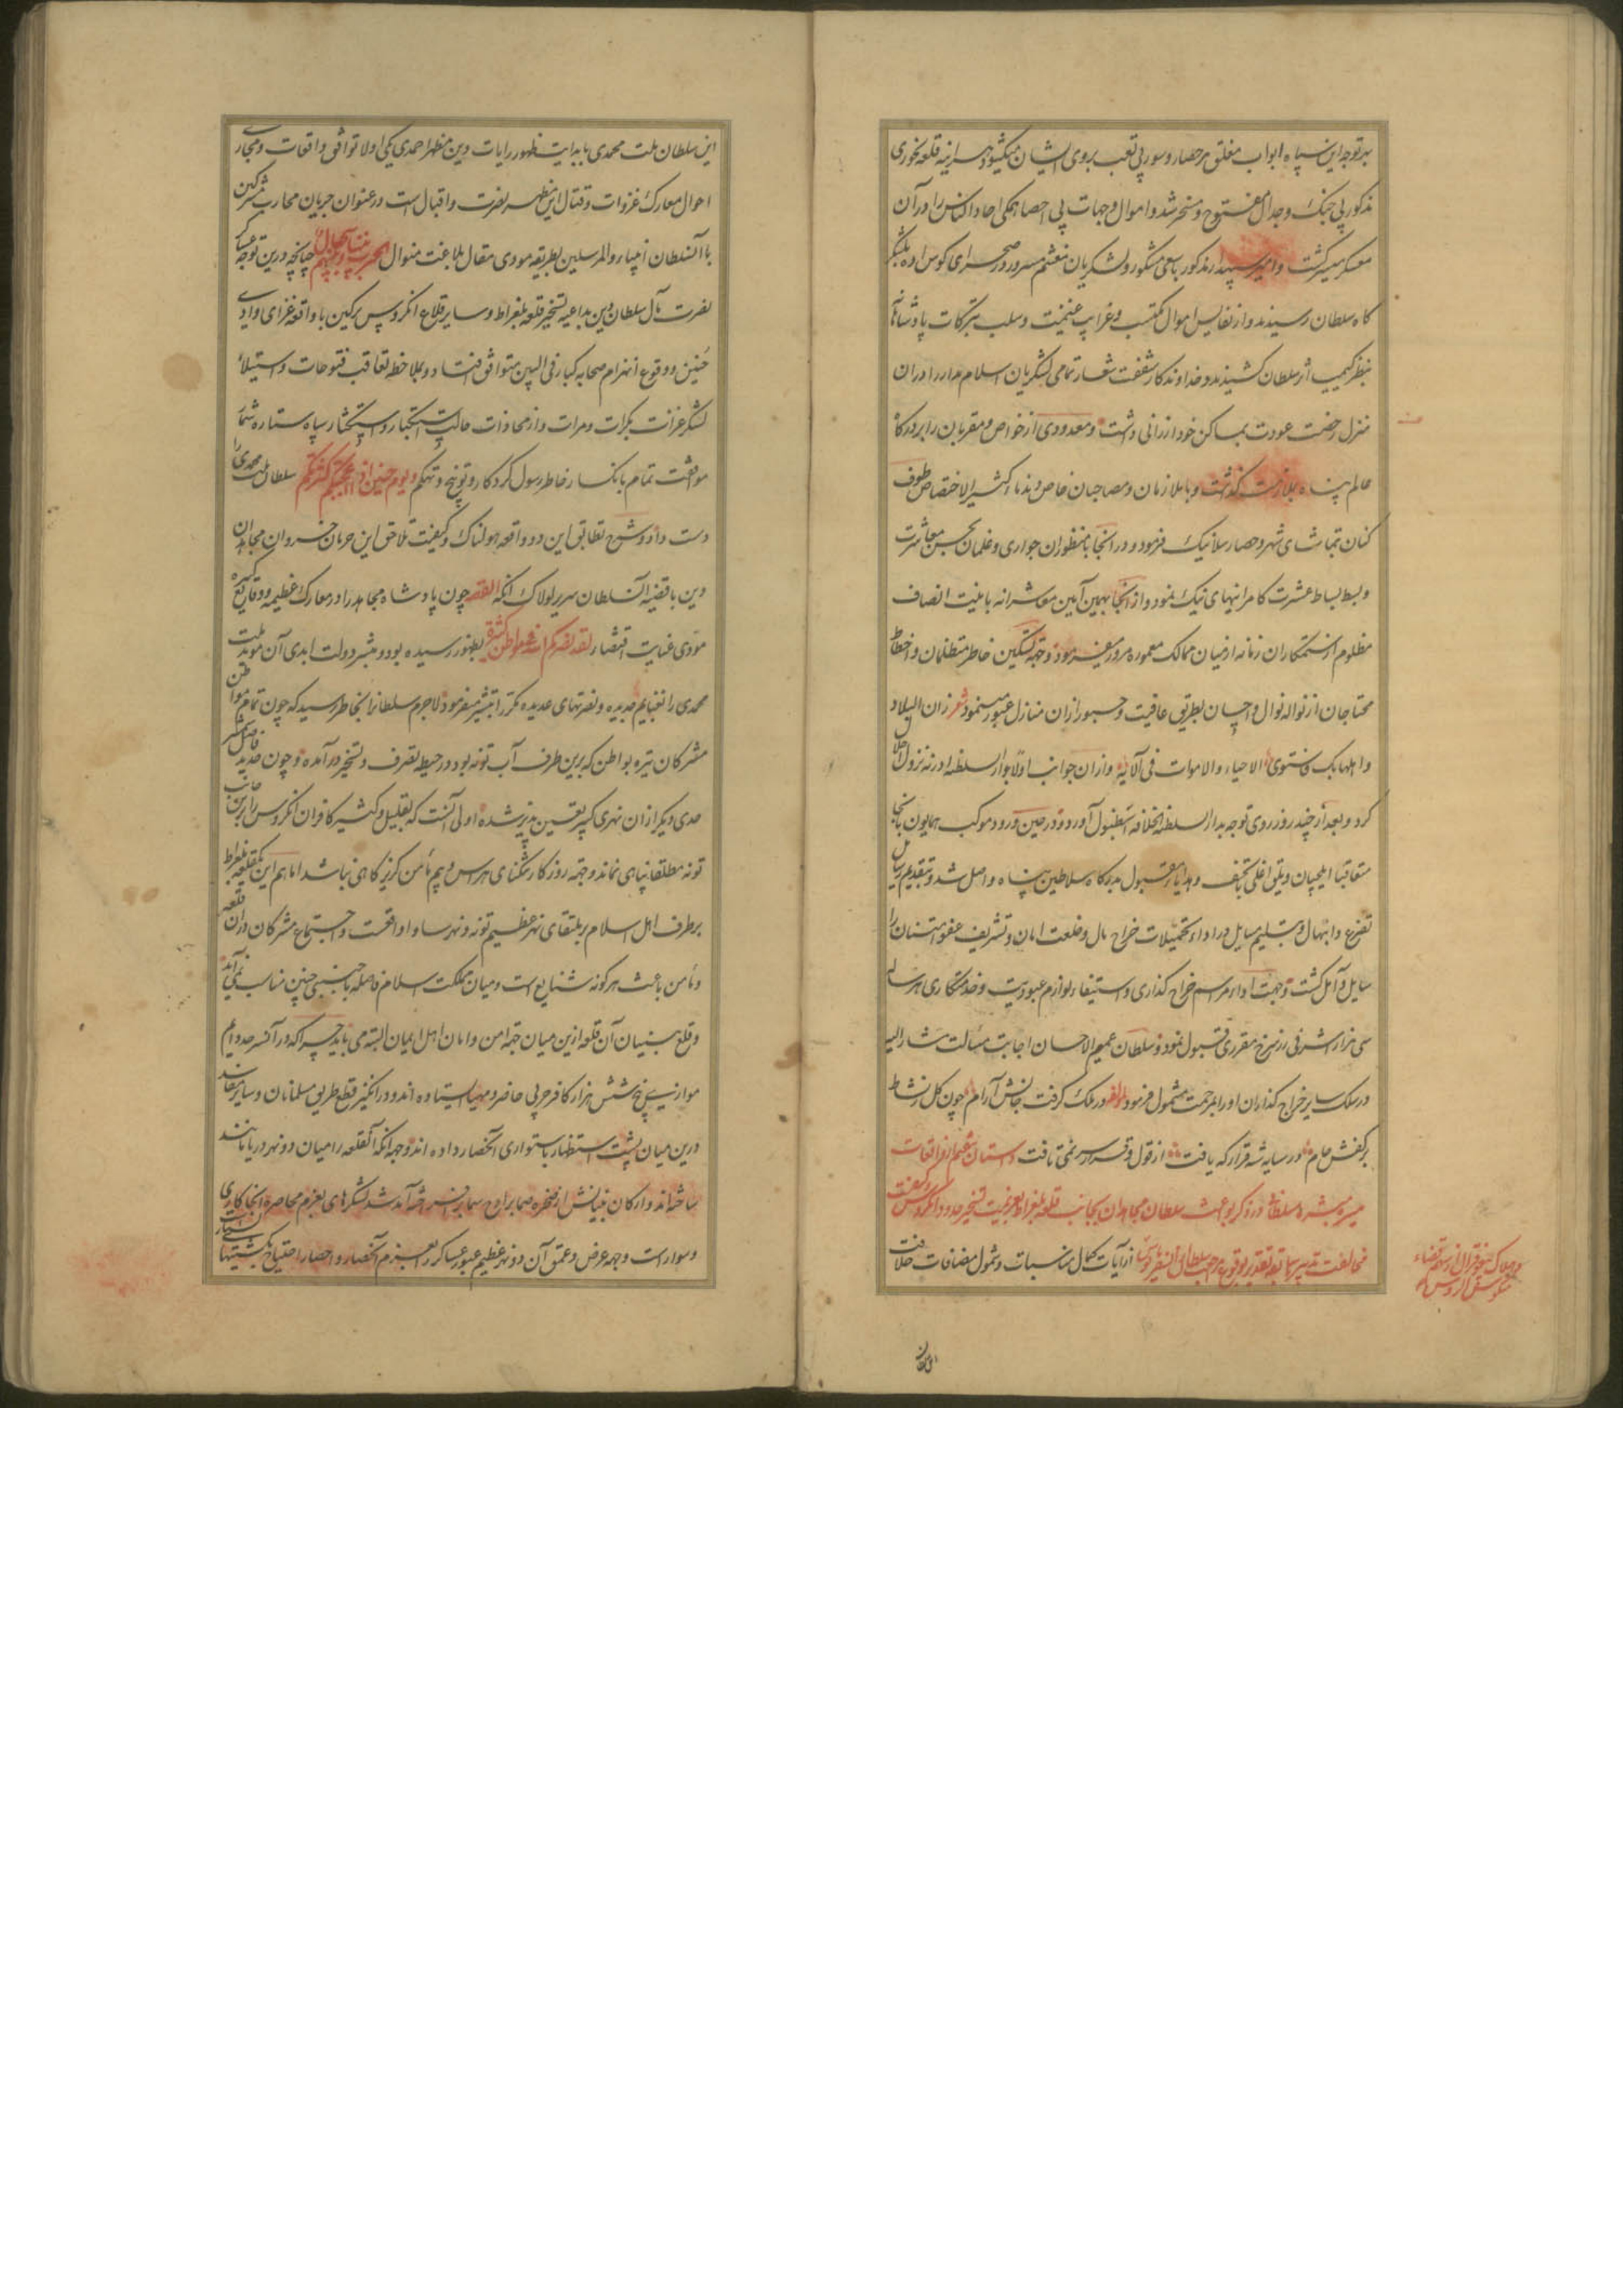 بر توجه این سپاه ابواب مغلق هر حصار و سور بی تعب بروی ایشان میگشود هر اینه قلعه نحوری
مذکور بی جنک و جدال مفتوح و مسخر شد و اموال و جهات بی احصا همکی احاد الناس را در آن
معسکر میسر کشت و امیر سپهدار مذکور با سعی مشکور و لشکریان مغتنم مسرور در صحرای کوس اوه بلشکر
کاه سلطان رسیدند و از نفایس اموال مکتسب و غرایب غنیمت و سلب تبرکات پادشاهانه
بنظر کیمیا اثر سلطان کشیدند و خداوندکار شفقت شعار تمامی لشکریان اسلام مدار را در ان
منزل رخصت عودت بمساکن خود ارزانی داشت و معدودی از خواص و مقربان را بر درکاه
عالم پناه بملازمت گذاشت و با ملازمان و مصاحبان خاص و ندماء کثیر الاختصاص طوف
کنان تماشای شهر و حصار سلانیک فرمود و در انجا با منظوران جواری و غلمان بحسن معاشرت
و بسط بساط عشرت کامرانیهای نیک نمود و از انجا بهمین آیین معاشرانه بانیت انصاف
مظلوم از ستمکاران زمانه از میان ممالک معموره مرور میفرمود و جهة تسکین خاطر متظلمان و اخطا
محتاجان از نواله نوال و احسان بطریق عافیت و حبور ازان منازل عبور مینمود شعر زان البلاد
و اهلها بک فاستوی الاحیاء و الاموات فی آلائه و ازان جوانب اولا بدار السلطنه ادرنه نزول اجلال
کرد و بعد از چند روز روی توجه بدار السلطنه الخلافه اسطنبول آورد و در حین ورود موکب همایون بانجا
متعاقبا ایلچیان و یلق اغلی با تحف و هدایاء مقبول بدرکاه سلاطین پناه واصل شد و بتقدیم رسایل
تضرع و ابتهال و تسلیم مسایل در اداء تحمیلات خراج مال و خلعت امان و تشریف عفو و امتنان را
سایل و آمل کشت و جهت اداء مراسم خراج کذاری و استیفاء لوازم عبودیت و خدمتکاری هر ساله
سی هزار اشرفی زر سرخ مقرری قبول نمود و سلطان عمیم الاحسان اجابت مسألت مشار الیه
در سلک سایر خراج کذاران او را بمرحمت مشمول فرمود لمؤلفه در ملک کرفت جانش آرام چون کل ز نشاط
بر کفش جام در سایه شه قرار که یافت از قول و قرار سر نمی تافت داستان ششم از واقعات
میسره مبشره سلطانی در ذکر بواعث سلطان مجاهدان بجانب قلعه بلغراد بعزیمت تسخیر حدود انکروس و کیفیت
مخالفت تدبیر با سابقه تقدیر بوقوع از آیات کمال مناسبات و شمول مضافات خلافت
این سلطان ملت محمدی با بدایت ظهور رایات دین مظهر احمدی یکی اولا توافق واقعات و مجاری
احوال معارک غزوات و قتال این مظهر نصرت و اقبال است در عنوان جریان محارب مشرکین
با آنسلطان انبیاء و المرسلین بطریقه مودی مقال بلاغت منوال الحرب بیننا و بینهم سجال چنانچه درین توجه عساکر
نصرت مآل سلطان دین بداعیه تسخیر قلعه بلغراط و سایر قلاع انکروس پر کین با واقعه غزای وادی
حنین و وقوع انهزام صحابه کبار فی البین متوافق افتاد و بملاحظه تعاقب فتوحات و استیلاء
لشکر غزات بکرات و مرات و از محاذات حالت استکبار و استکثار سپاه ستاره شمار
موافقت تمام بانکسار خاطر رسول کردکار و توبیخ و تهکم و یوم حنین اذ اعجبتکم کثرتکم سلطان ملت محمدی را
دست داد و شرح تطابق این دو واقعه هولناک و کیفیت تلاحق این حرمان خسروان مجاهدان
دین با قضیه آن سلطان سریر لولاک انکه القصه چون پادشاه مجاهد را در معارک عظیمه و وقایع کثیره
مودی عنایت اقتضاء لقد نصرکم الله فی مواطن کثیرة بظهور رسیده بود و مبشر دولت ابدی آن موید ملت
محمدی را بغنایم جدیده و نصرتهای عدیده مکرر ابتشیر میفرمود لاجرم سلطانرا بخاطر رسید که چون تمام مواطن
مشرکان تیره بواطن که برین طرف آب تونه بود در حیطه تصرف و تسخیر درآمده و چون حد فاصل مشرکین
حدی دیکر ازان نهری کبیر تعیین پذیر شده اولی آنست که بقلیل و کثیر کافران انکروس را برین جانب
تونه مطلقا پناهی نماند و جهة روزکار تنکنای هراس و بیم مأمن کریزکاهی نباشد اما هم این یک قلعه بلغراط
بر طرف اهل اسلام بر ملتقای نهر عظیم تونه و نهر ساوا واقعست و اجتماع مشرکان دران قلعه
و مأمن باعث هرکونه شنایع است و میان مملکت اسلام فاصله باجنبی چنین مناسب نمی آید
و قلع بنیان آن قلعه ازین میان جهة امن و امان اهل ایمان البته می باید چرا که در آن سر حد دایم
موازی پنج شش هزار کافر حربی حاضر و مهیا ایستاده اند و در انکیز قطع طریق مسلمانان و سایر مفاسد
درین میان پشت استظهار باستواری آنحصار داده اند و جهة انکه آنقلعه را میان دو نهر دریا مانند
ساخته اند و ارکان بنیانش از صخره صما بر اوج سما برافراخته آمد شد لشکرهای بعزم محاصره انجا کاری
و سوار است و جهة عرض و عمق آن دو نهر عظیم عبور عساکر را بعزم آنحصار و احصار احتیاج بکشتیها